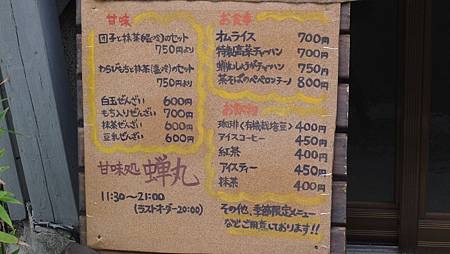 甘味
団子と抹茶(温・冷)のセット
750円より
わらびもちと抹茶(温・冷)のセット
750円より
白玉ぜんざい 600円
もち入りぜんざい 700円
抹茶ぜんざい 600円
豆乳ぜんざい 600円
甘味処 蝉丸
11:30〜21:00
(ラストオーダー20:00)
お食事
オムライス 700円
特製高菜チャーハン 700円
750円
茶そばのペペロンチーノ 800円
お飲物
珈琲〈有機栽培豆〉 400円
アイスコーヒー 450円
紅茶 400円
アイスティー 450円
抹茶 400円
その他、季節限定メニュー
などご用意しております!!